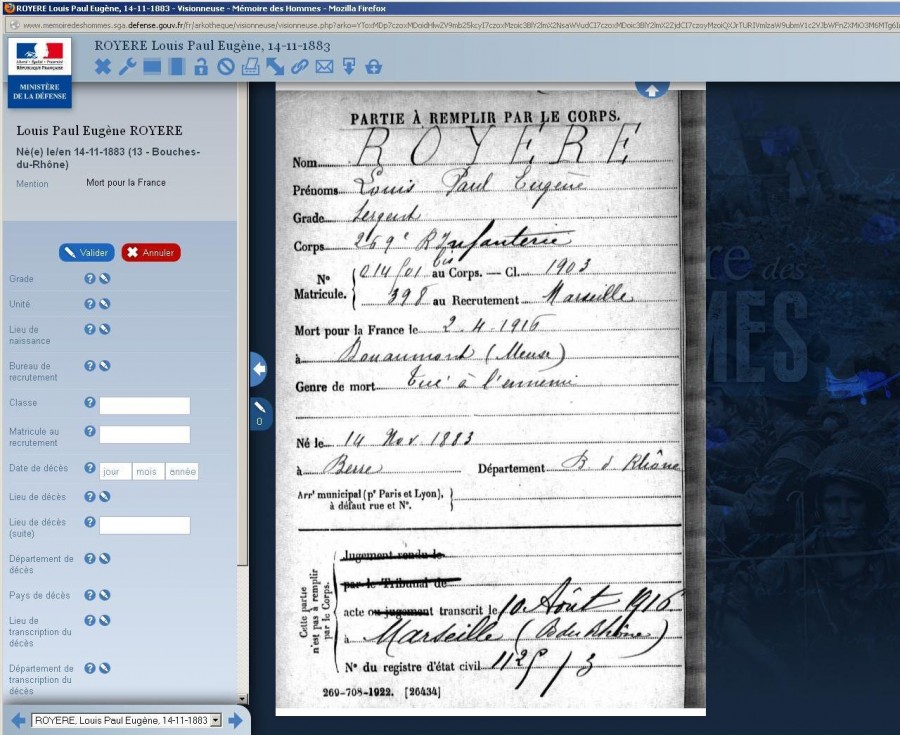 ROYERE Louis Paul Eugène, 14-11-1883 - Visionneuse - Mémoire des Hommes - Mozilla Firefox
ROYERE Louis Paul Eugène, 14-11-1883
Liberté • Égalité • Fraternité
RÉPUBLIQUE FRANÇAISE
MINISTÈRE
DE LA DÉFENSE
Louis Paul Eugène ROYERE
Né(e) le/en 14-11-1883 (13 - Bouches-
du-Rhône)
Mention Mort pour la France
Valider Annuler
Grade ?
Unité ?
Lieu de
naissance ?
Bureau de
recrutement ?
Classe ?
Matricule au
recrutement ?
Date de décès ? jour mois année
Lieu de décès ?
Lieu de décès
(suite) ?
Département de
décès ?
Pays de décès ?
Lieu de
transcription du
décès ?
Département de
transcription du
décès ?
ROYERE, Louis Paul Eugène, 14-11-1883
0
PARTIE À REMPLIR PAR LE CORPS.
Nom ROYERE
Prénoms Louis Paul Eugène
Grade Sergent
Corps 269e R Infanterie
bis
No Matricule. 014/01 au Corps. — Cl. 1903
398 au Recrutement Marseille
Mort pour la France le 2.4.1916
à Douaumont (Meuse)
Genre de mort Tué à l'ennemi
Né le 14 Nov. 1883
à Berre Département B d Rhône
Arrt municipal (pr Paris et Lyon),
à défaut rue et No.
Cette partie
n'est pas à remplir
par le Corps.
Jugement rendu le
par le Tribunal de
acte ou jugement transcrit le 10 Août 1916
à Marseille (B du Rhône)
No du registre d'état civil
269-708-1922. [26434]
re des
MES